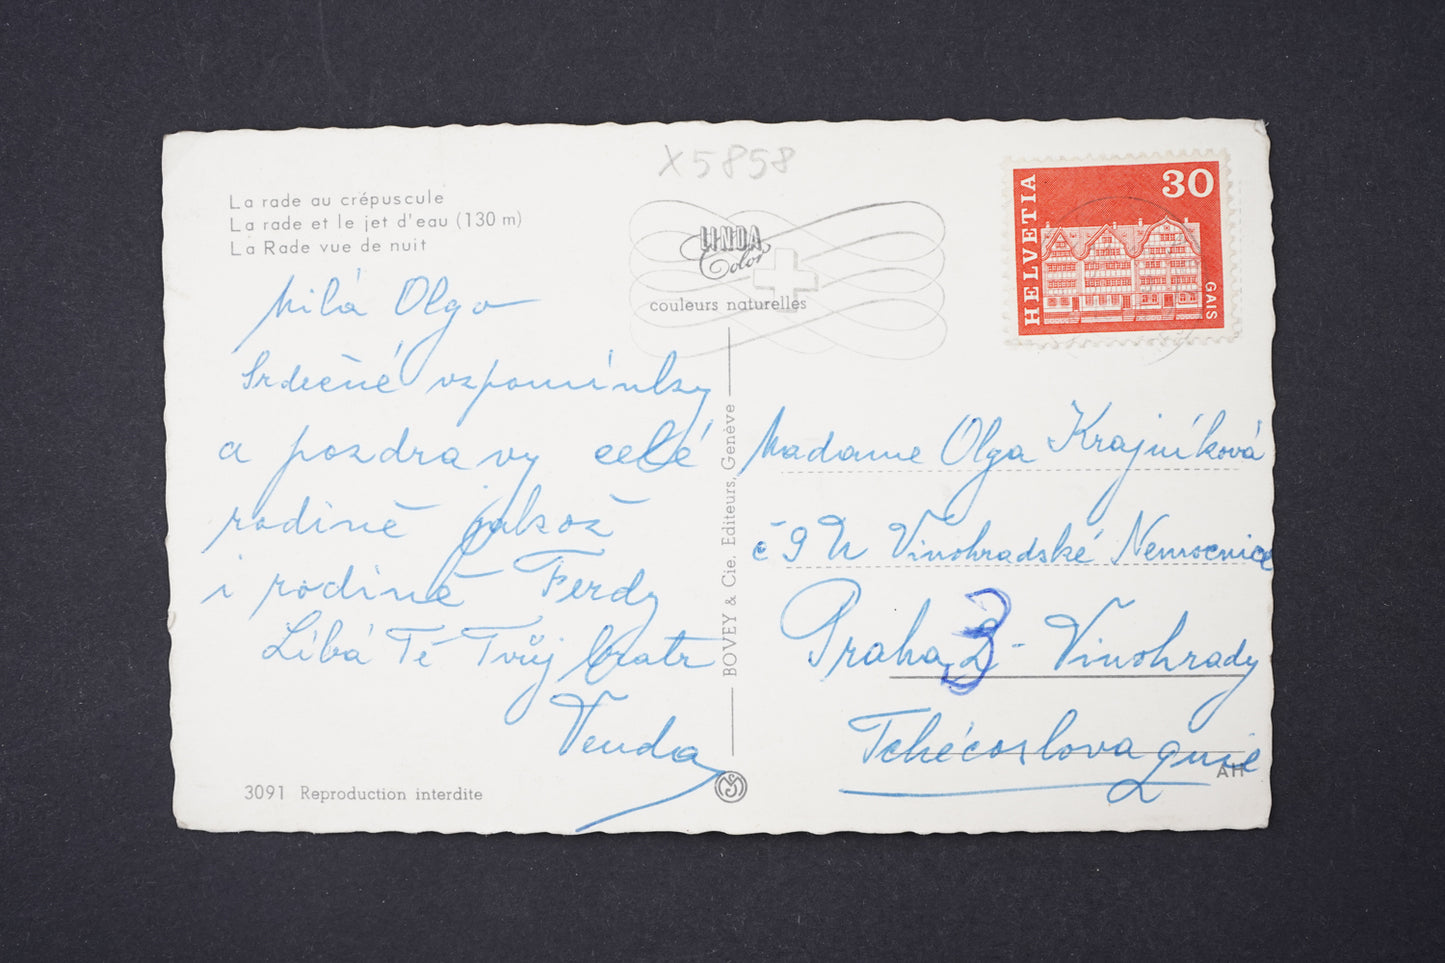 X5858
La rade au crépuscule
La rade et le jet d'eau (130 m)
La Rade vue de nuit
LINDA
Color
couleurs naturelles
HELVETIA
30
GAIS
Milá Olgo
Srdečné vzpomínky
a pozdravy celé
rodině jakož
i rodině Ferdy
Líbá Tě Tvůj bratr
Venda
3091 Reproduction interdite
BOVEY & Cie. Editeurs, Genève
Madame Olga Krajníková
č 9 U Vinohradské Nemocnice
Praha 3 - Vinohrady
Tchécoslovaquie
AH